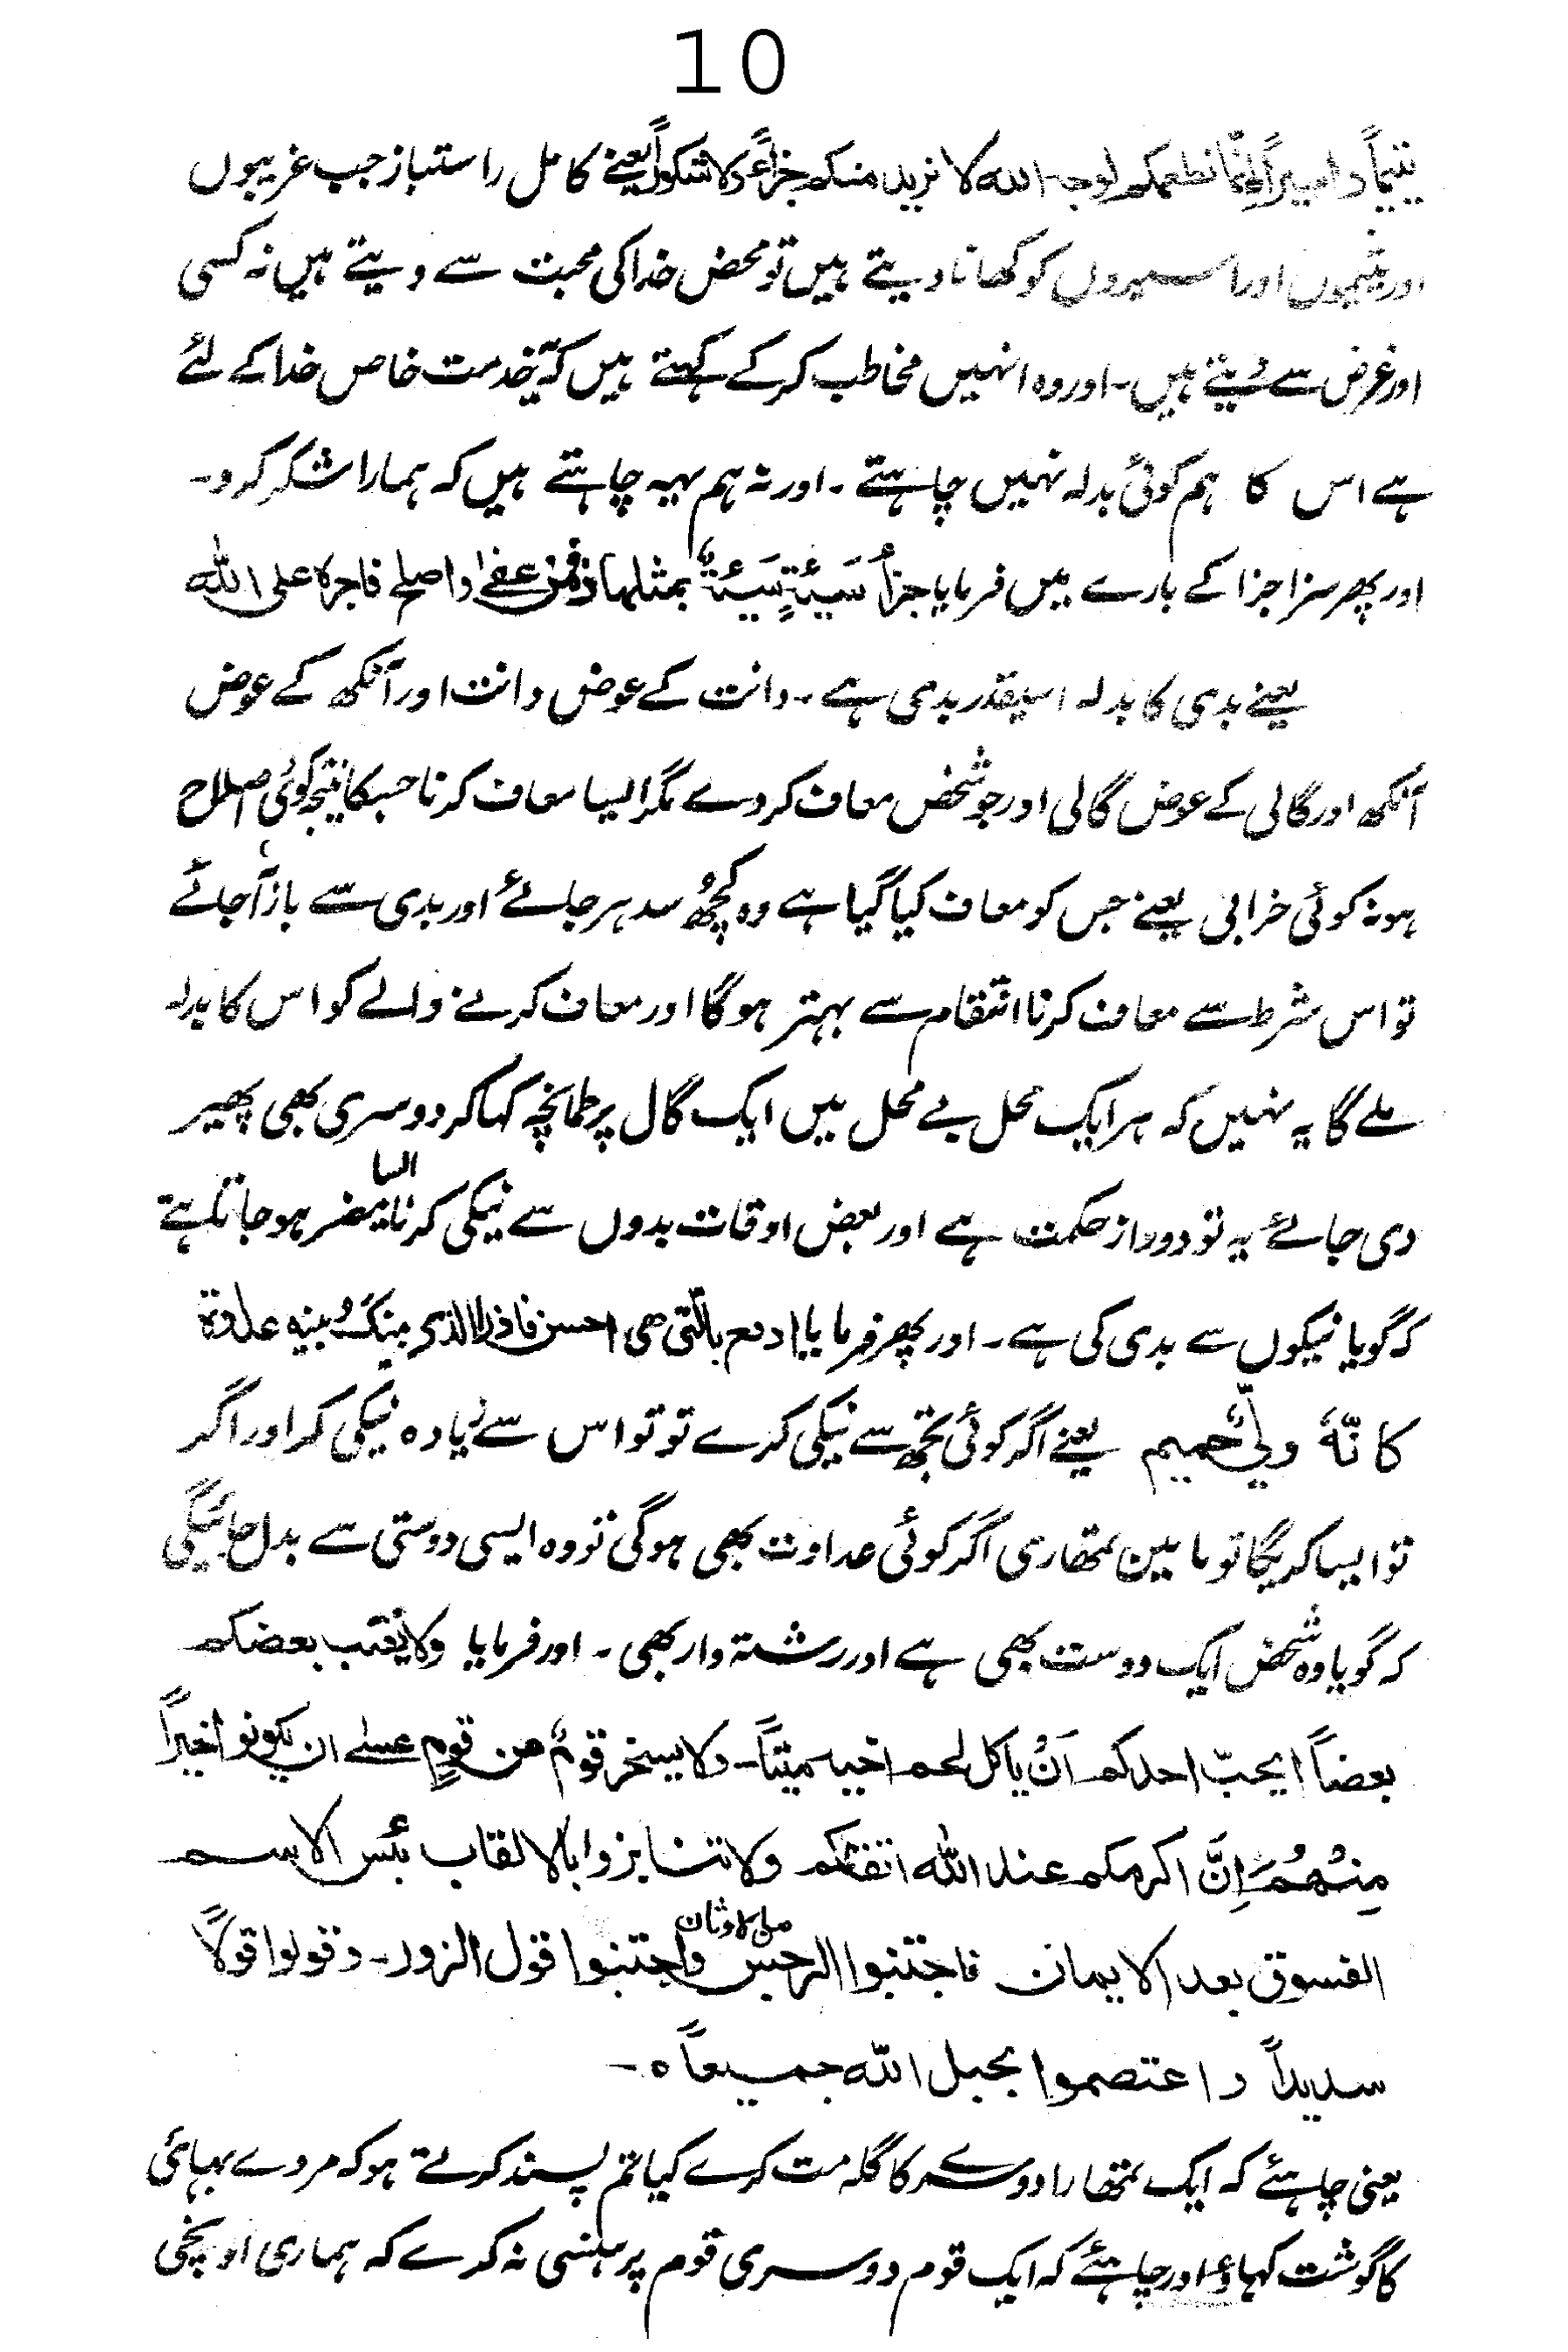 10
یتیماً و اسیراً انما نطعمکم لوجہ اللہ لا نرید منکم جزاءً ولا شکوراً یعنے کامل راستباز جب غریبوں
اور یتیموں اور اسیروں کو کھانا دیتے ہیں تو محض خدا کی محبت سے دیتے ہیں نہ کسی
اور غرض سے دیتے ہیں۔ اور وہ انہیں مخاطب کر کے کہتے ہیں کہ یہ خدمت خاص خدا کے لئے
ہے اس کا ہم کوئی بدلہ نہیں چاہتے ۔ اور نہ ہم یہہ چاہتے ہیں کہ ہمارا شکر کرو۔
اور پھر سزا جزا کے بارے میں فرمایا جزاءُ سَیئۃٍ سَیئۃٌ بمثلہا فمن عفا و اصلح فاجرہ علی اللہ
یعنے بدی کا بدلہ اسیقدر بدی ہے ۔ دانت کے عوض دانت اور آنکھ کے عوض
آنکھ اور گالی کے عوض گالی اور جو شخص معاف کر دے مگر ایسا معاف کرنا جسکا نتیجہ کوئی اصلاح
ہو نہ کوئی خرابی یعنے جس کو معاف کیا گیا ہے وہ کچھ سدہر جائے اور بدی سے باز آجائے
تو اس شرط سے معاف کرنا انتقام سے بہتر ہوگا اور معاف کرنے والے کو اس کا بدلہ
ملے گا یہ نہیں کہ ہر ایک محل بے محل میں ایک گال پر طمانچہ کہا کر دوسری بھی پھیر
دی جائے یہ تو دور از حکمت ہے اور بعض اوقات بدوں سے نیکی کرنا ایسا مضر ہو جاتا ہے
کہ گویا نیکوں سے بدی کی ہے ۔ اور پھر فرمایا ادفع بالّتی ھی احسن فاذا الذی بینک و بینہ عداوۃ
کانّہٗ ولیٌّ حمیم یعنے اگر کوئی تجھ سے نیکی کرے تو تو اس سے زیادہ نیکی کر اور اگر
تو ایسا کریگا تو مابین تمھاری اگر کوئی عداوت بھی ہوگی تو وہ ایسی دوستی سے بدل جائیگی
کہ گویا وہ شخص ایک دوست بھی ہے اور رشتہ دار بھی ۔ اور فرمایا ولا یغتب بعضکم
بعضاً ایحبّ احدکم اَنْ یاکل لحم اخیہ میتاً۔ ولا یسخر قومٌ من قومٍ عسٰی ان یکونو اخیراً
مِنہُمْ اِنَّ اکرمکم عند اللہ اتقٰکم ولا تنابزوا بالالقاب بئس الاسم
الفسوق بعد الایمان فاجتنبوا الرجس من الاوثان واجتنبوا قول الزور۔ وقولوا قولاً
سدیداً و اعتصموا بحبل اللہ جمیعاً ہ۔
یعنی چاہئے کہ ایک تمھارا دوسرے کا گلہ مت کرے کیا تم پسند کرتے ہو کہ مردے بہائی
کا گوشت کہاؤ اور چاہئے کہ ایک قوم دوسری قوم پر ہنسی نہ کرے کہ ہماری اونچی